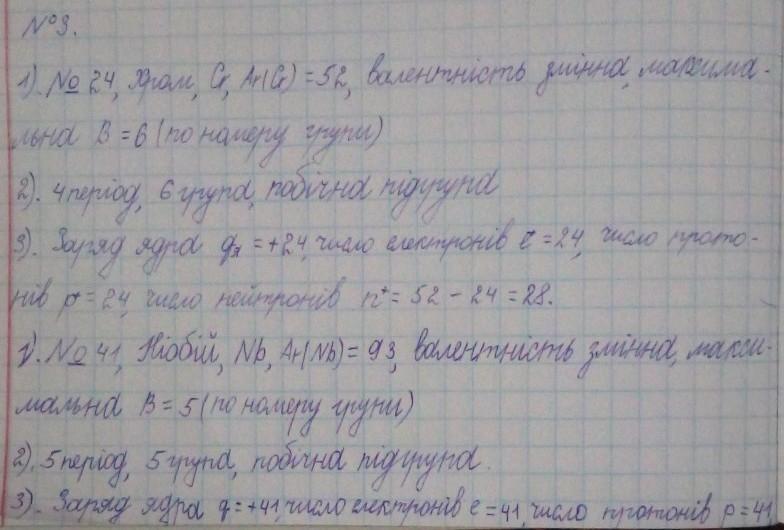 №3.
1). № 24, Хром, Cr, Ar(Cr) = 52, валентність змінна, максима-
льна В = 6 (по номеру групи)
2). 4 період, 6 група, побічна підгрупа
3). Заряд ядра qя = +24, число електронів e⁻ = 24, число прото-
нів p⁺ = 24, число нейтронів n⁺ = 52 - 24 = 28.
1). № 41, Ніобій, Nb, Ar(Nb) = 93, валентність змінна, макси-
мальна В = 5 (по номеру групи)
2). 5 період, 5 група, побічна підгрупа.
3). Заряд ядра q = +41, число електронів e = 41, число протонів p = 41